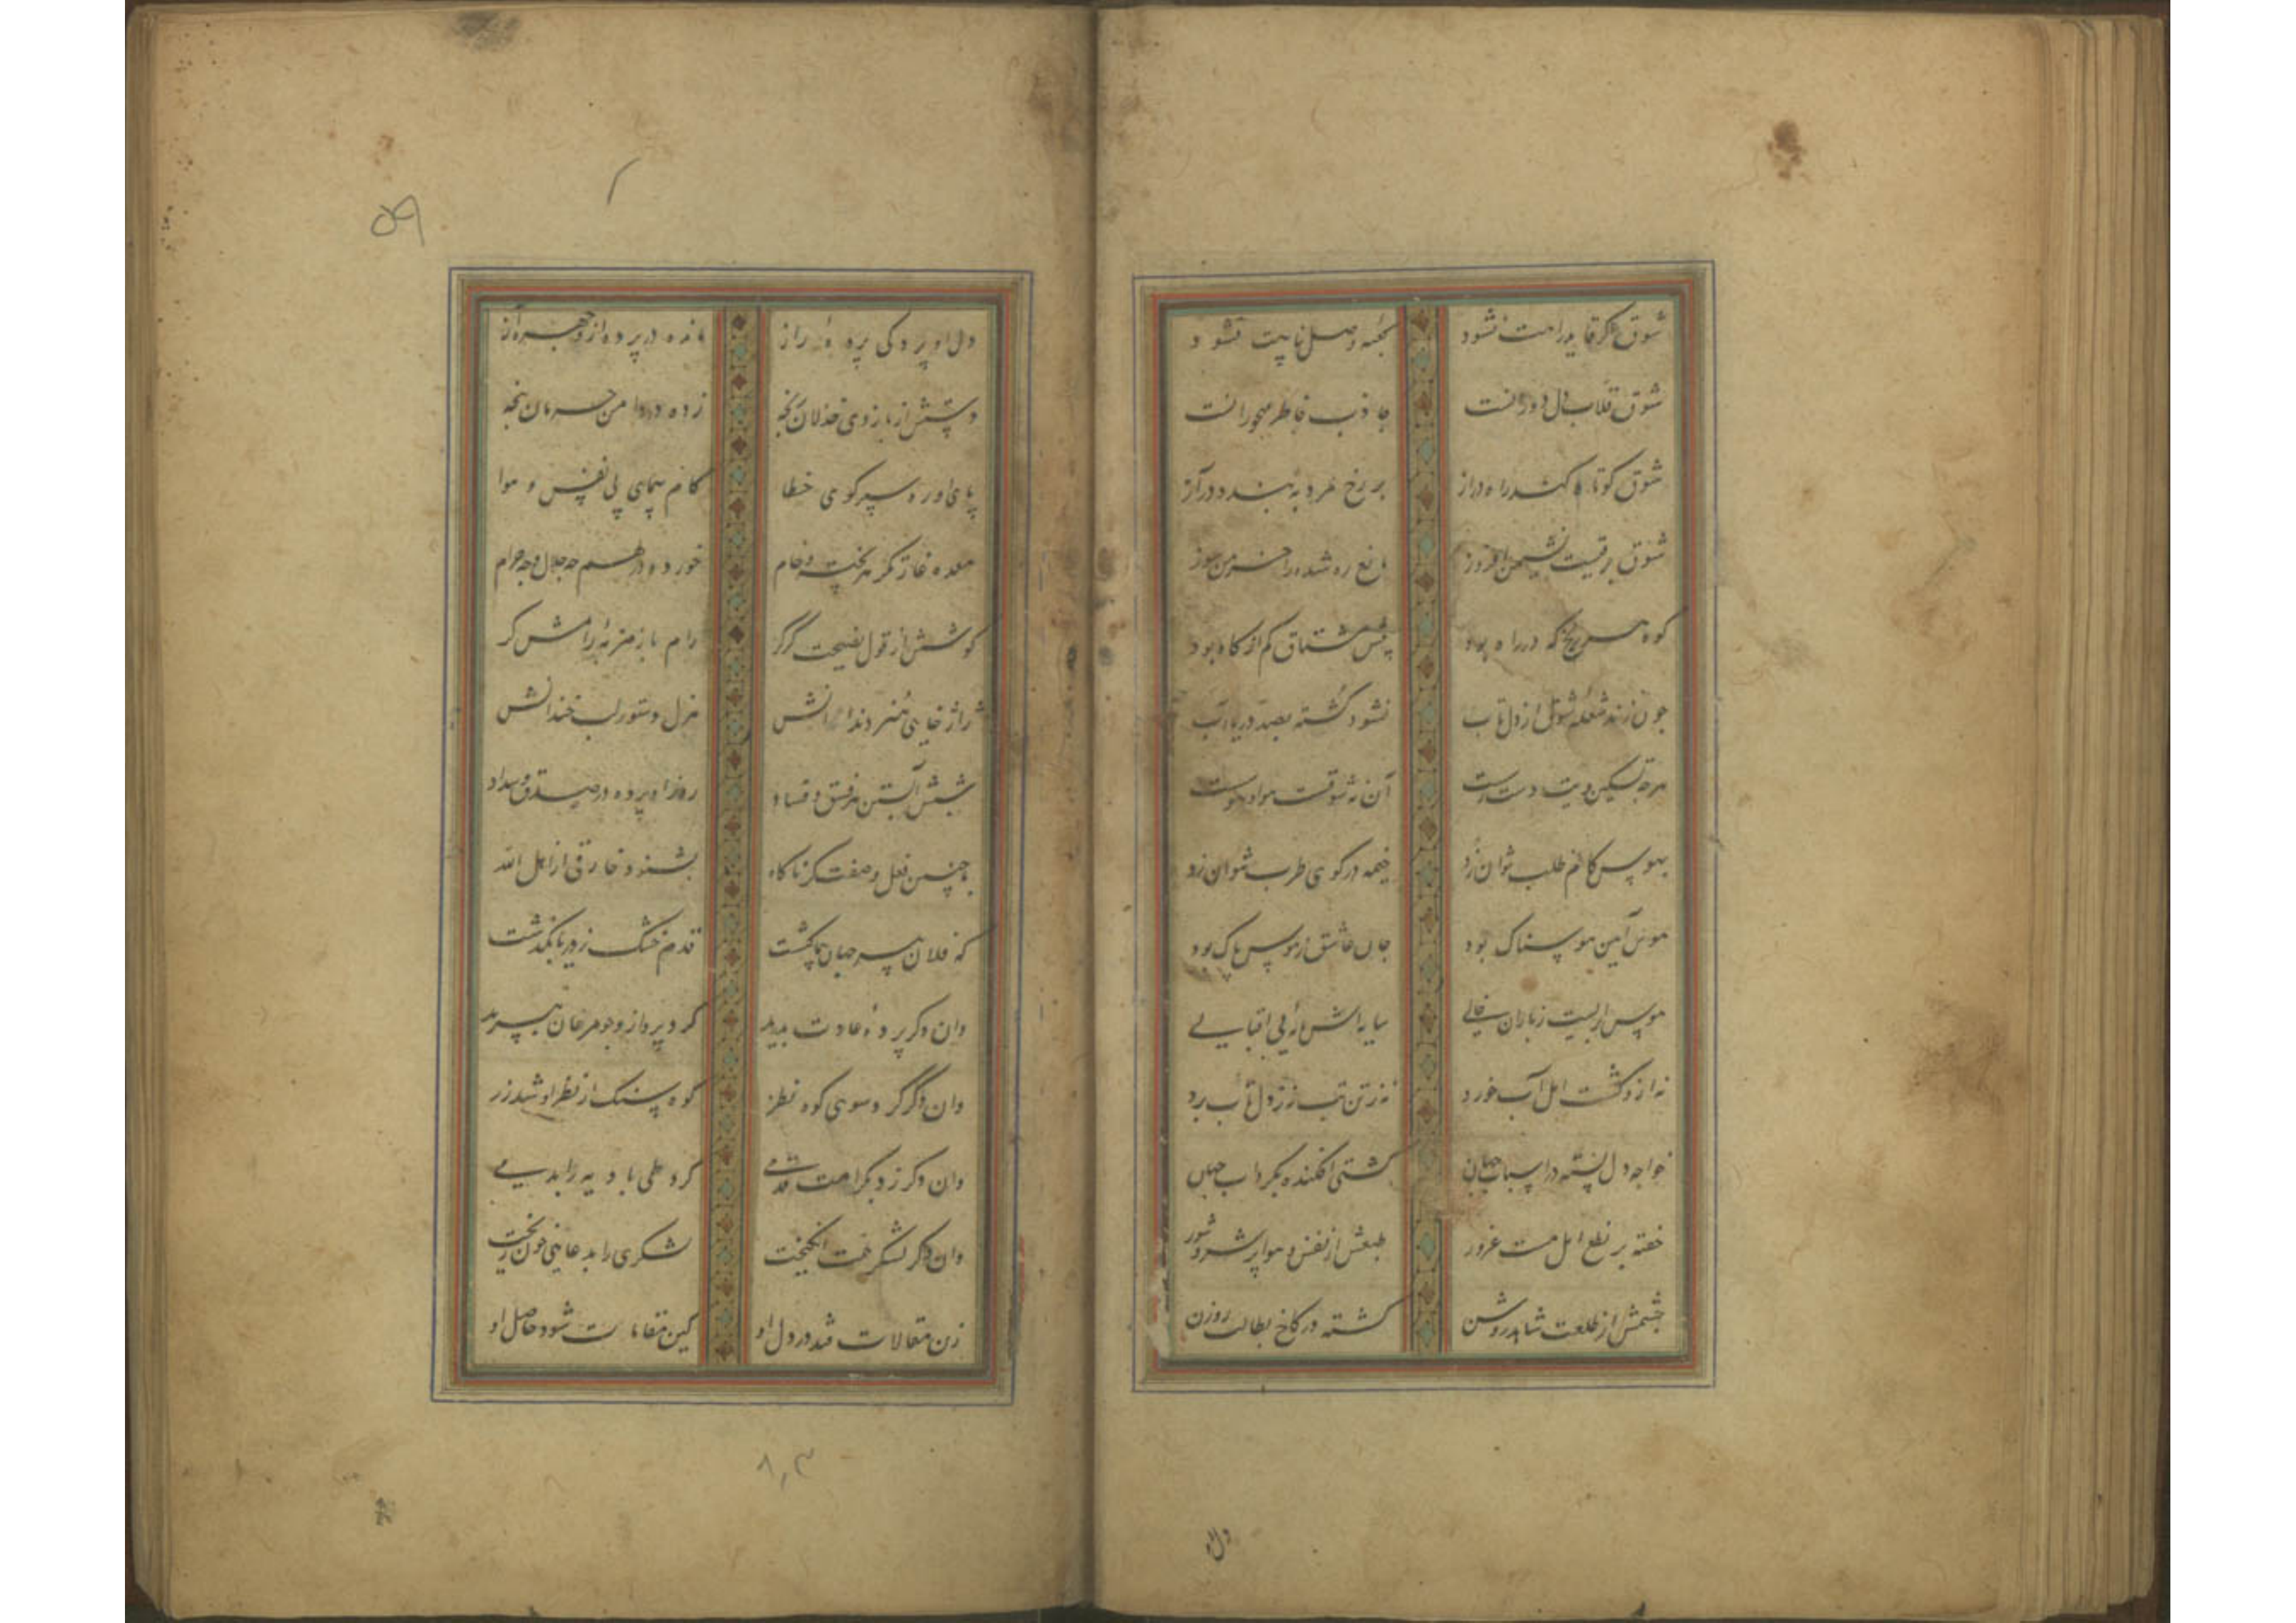 شوق اگر قاید راهت نشود
کعبه وصل پناهت نشود
شوق قلاب دل دورانست
جاذب خاطر مهجورانست
شوق کوتاه کند راه دراز
بر رخ مرد ببندد در آز
شوق برقیست نشیمن افروز
مانع ره شده را خرمن سوز
کوه هر سنخ که در راه بود
پیش مشتاق کم از کاه بود
چون زند شعله شوق از دل تاب
نشود کشته بصد دریا آب
هرچه تسکین دهیت دست هواست
آن نه شوقست هوا و هوست
بهوس کام طلب نتوان زد
خیمه در کوی طرب نتوان زد
هوس آیین هوسناک بود
جان عاشق ز هوس پاک بود
هوس ابریست ز باران خالی
سایه اش مایه بی اقبالی
نه ازو کشت امل آب خورد
نه ز تن تب نه ز دل تاب برد
خواجه دل بسته در اسباب جهان
کشتی افکنده بگرداب جهان
خفته بر نطع امل مست غرور
طبعش از نفس و هوا پر شر و شور
چشمش از طلعت شاهد روشن
گشته در کاخ بطالت روزن
دل او پردگی پرده راز
مانده در پرده از و چهره آز
دستش از بازوی خذلان رنجه
زده در دامن حرمان پنجه
پای او ره سپر کوی خطا
گام پیمای پی نفس و هوا
معده غارتگر هر پخته و خام
خورده در هم چه حلال و چه حرام
گوشش از قول نصیحت گر کر
رام با زمزمه رامش گر
ژاژ خایی هنر دندانش
هزل دستور لب خندانش
شبش آبستن هر فسق و فساد
روز او پرده در صدق و سداد
با چنین فعل و صفت گر ناگاه
بشنود خارقی از اهل الله
که فلان پیر جهان پیما گشت
قدم خشک ز دریا بگذشت
وان دگر پرده عادت بدرید
کرد پرواز و چو مرغان بپرید
وان دگر کرد سوی کوه نظر
کوه سنگ از نظر او شد زر
وان دگر زد بکرامت قدمی
کرد طی بادیه را بدمی
وان دگر لشکر همت انگیخت
لشکری را بدعایی خون ریخت
زن مقالات فتد در دل او
کین مقامات شود حاصل او
دل او
۵۹
۸٫۳